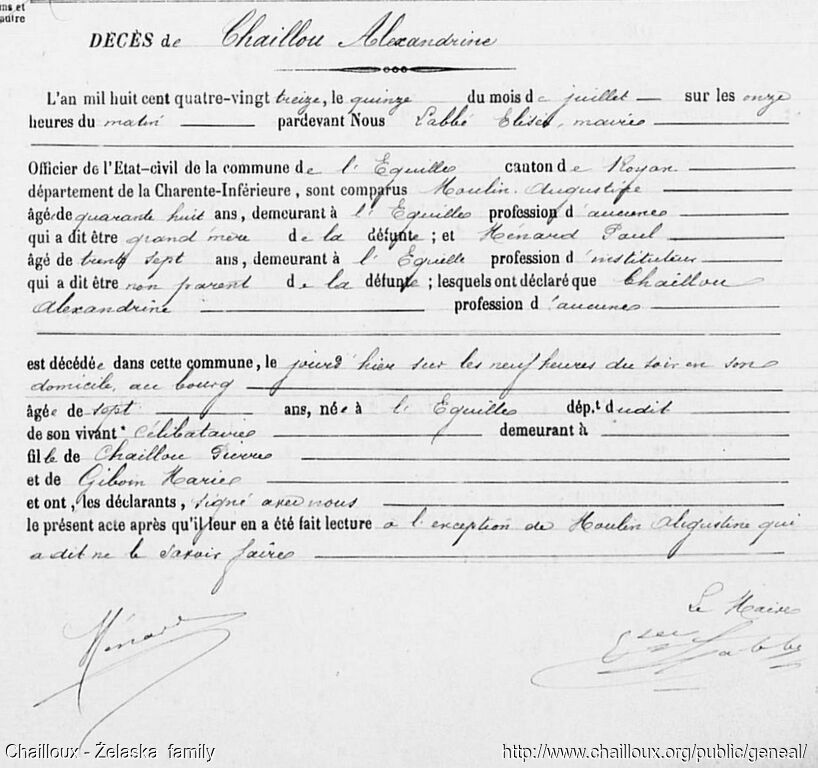 ns et
autre
DÉCÈS de Chaillou Alexandrine
L'an mil huit cent quatre-vingt treize, le quinze du mois de juillet sur les onze
heures du matin pardevant Nous Labbé Elisé, maire
Officier de l'Etat-civil de la commune de l'Eguille canton de Royan
département de la Charente-Inférieure, sont comparus Moulin Augustine
âgée de quarante huit ans, demeurant à l'Eguille profession d'aucune
qui a dit être grand'mère de la défunte ; et Ménard Paul
âgé de trente sept ans, demeurant à l'Eguille profession d'instituteur
qui a dit être non parent de la défunte ; lesquels ont déclaré que Chaillou
Alexandrine profession d'aucune
est décédée dans cette commune, le jourd'hier sur les neuf heures du soir en son
domicile, au bourg
âgée de sept ans, née à l'Eguille dép.t dudit
de son vivant célibataire demeurant à
fille de Chaillou Pierre
et de Giboin Marie
et ont, les déclarants, signé avec nous
le présent acte après qu'il leur en a été fait lecture à l'exception de Moulin Augustine qui
a dit ne le savoir faire
Le Maire
Ménard
Labbé
Chailloux - Želaska family
http://www.chailloux.org/public/geneal/